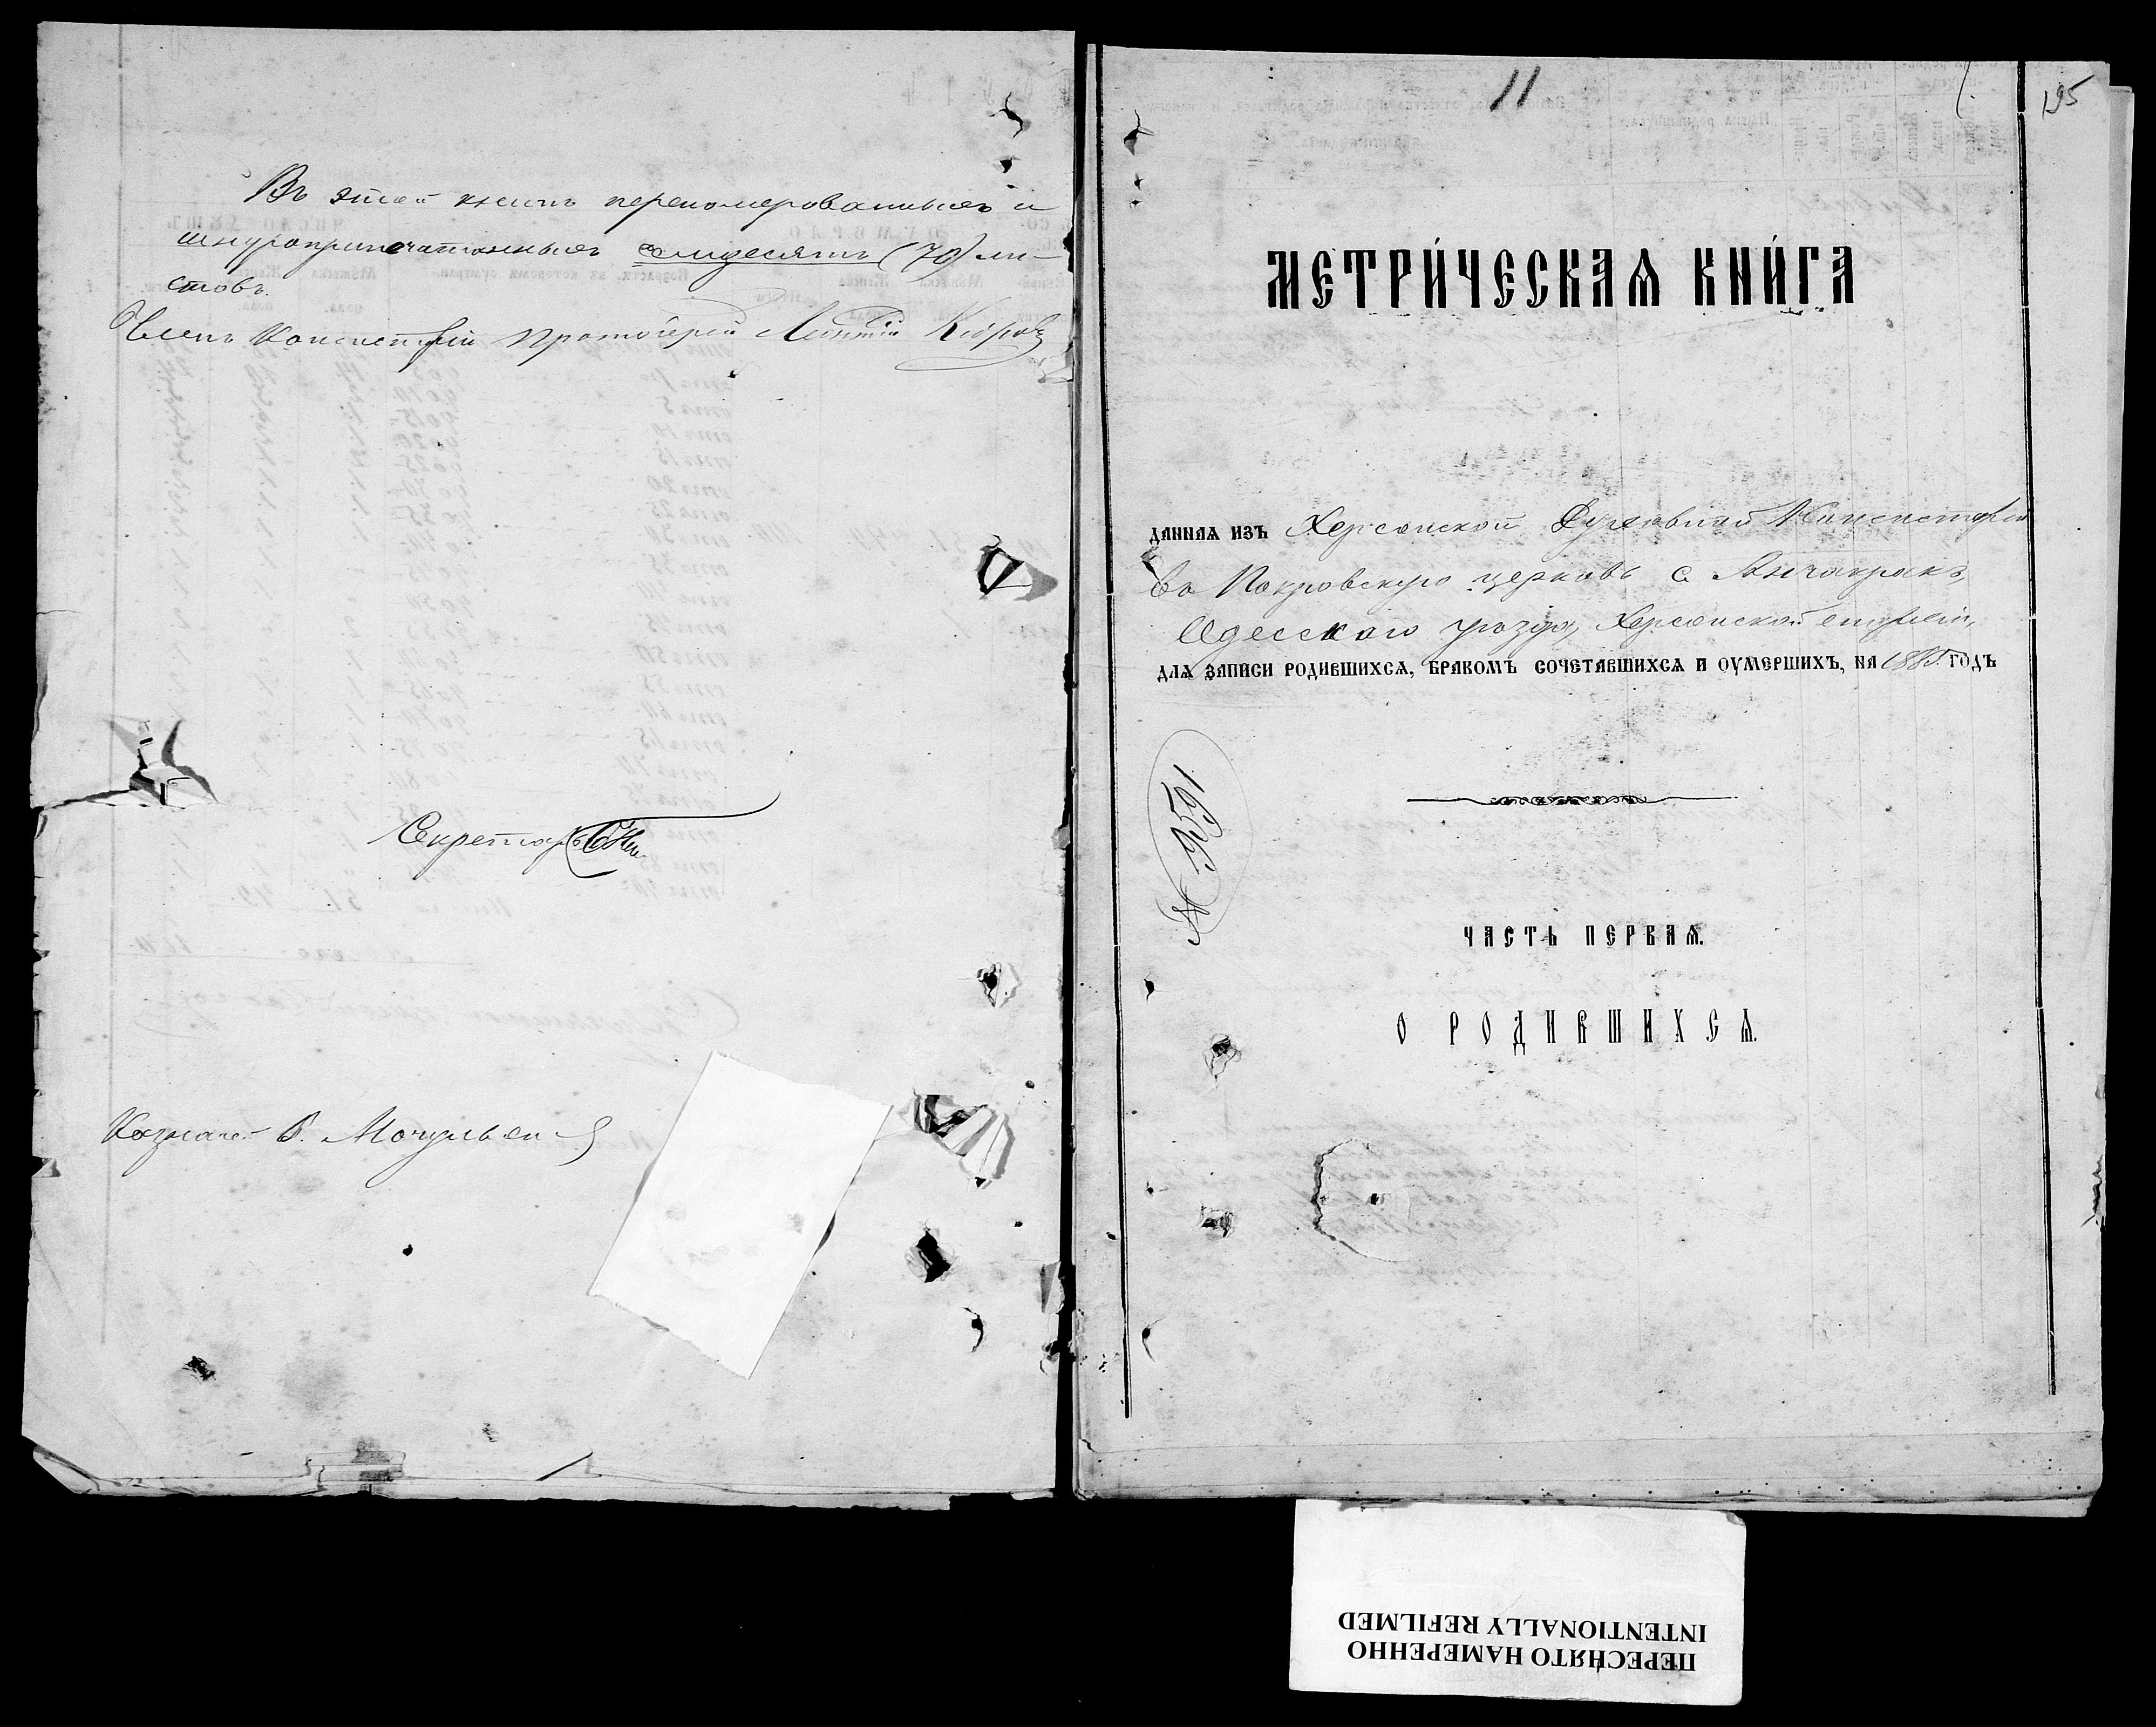 Въ этой книгѣ перенумерованныхъ и
шнуроприпечатанныхъ семдесятъ (70) ли-
стовъ.
Членъ Консисторіи Протоіерей
Секретарь
Казначей В. Мочульскій
11
195
МЕТРИ́ЧЕСКАѦ КНИ́ГА
ДАННАѦ ИЗЪ Херсонской Духовной Консисторіи
въ Покровскую церковь с. Анчакракъ,
Одесскаго уѣзда, Херсонской епархіи,
ДЛѦ ЗАПИСИ РОДИВШИХСѦ, БРАКОМЪ СОЧЕТАВШИХСѦ И ОУМЕРШИХЪ, НА 1885 ГОДЪ
№ 9591
ЧАСТЬ ПЕРВАѦ.
О РОДИВШИХСѦ.
ПЕРЕСНЯТО НАМЕРЕННО
INTENTIONALLY REFILMED